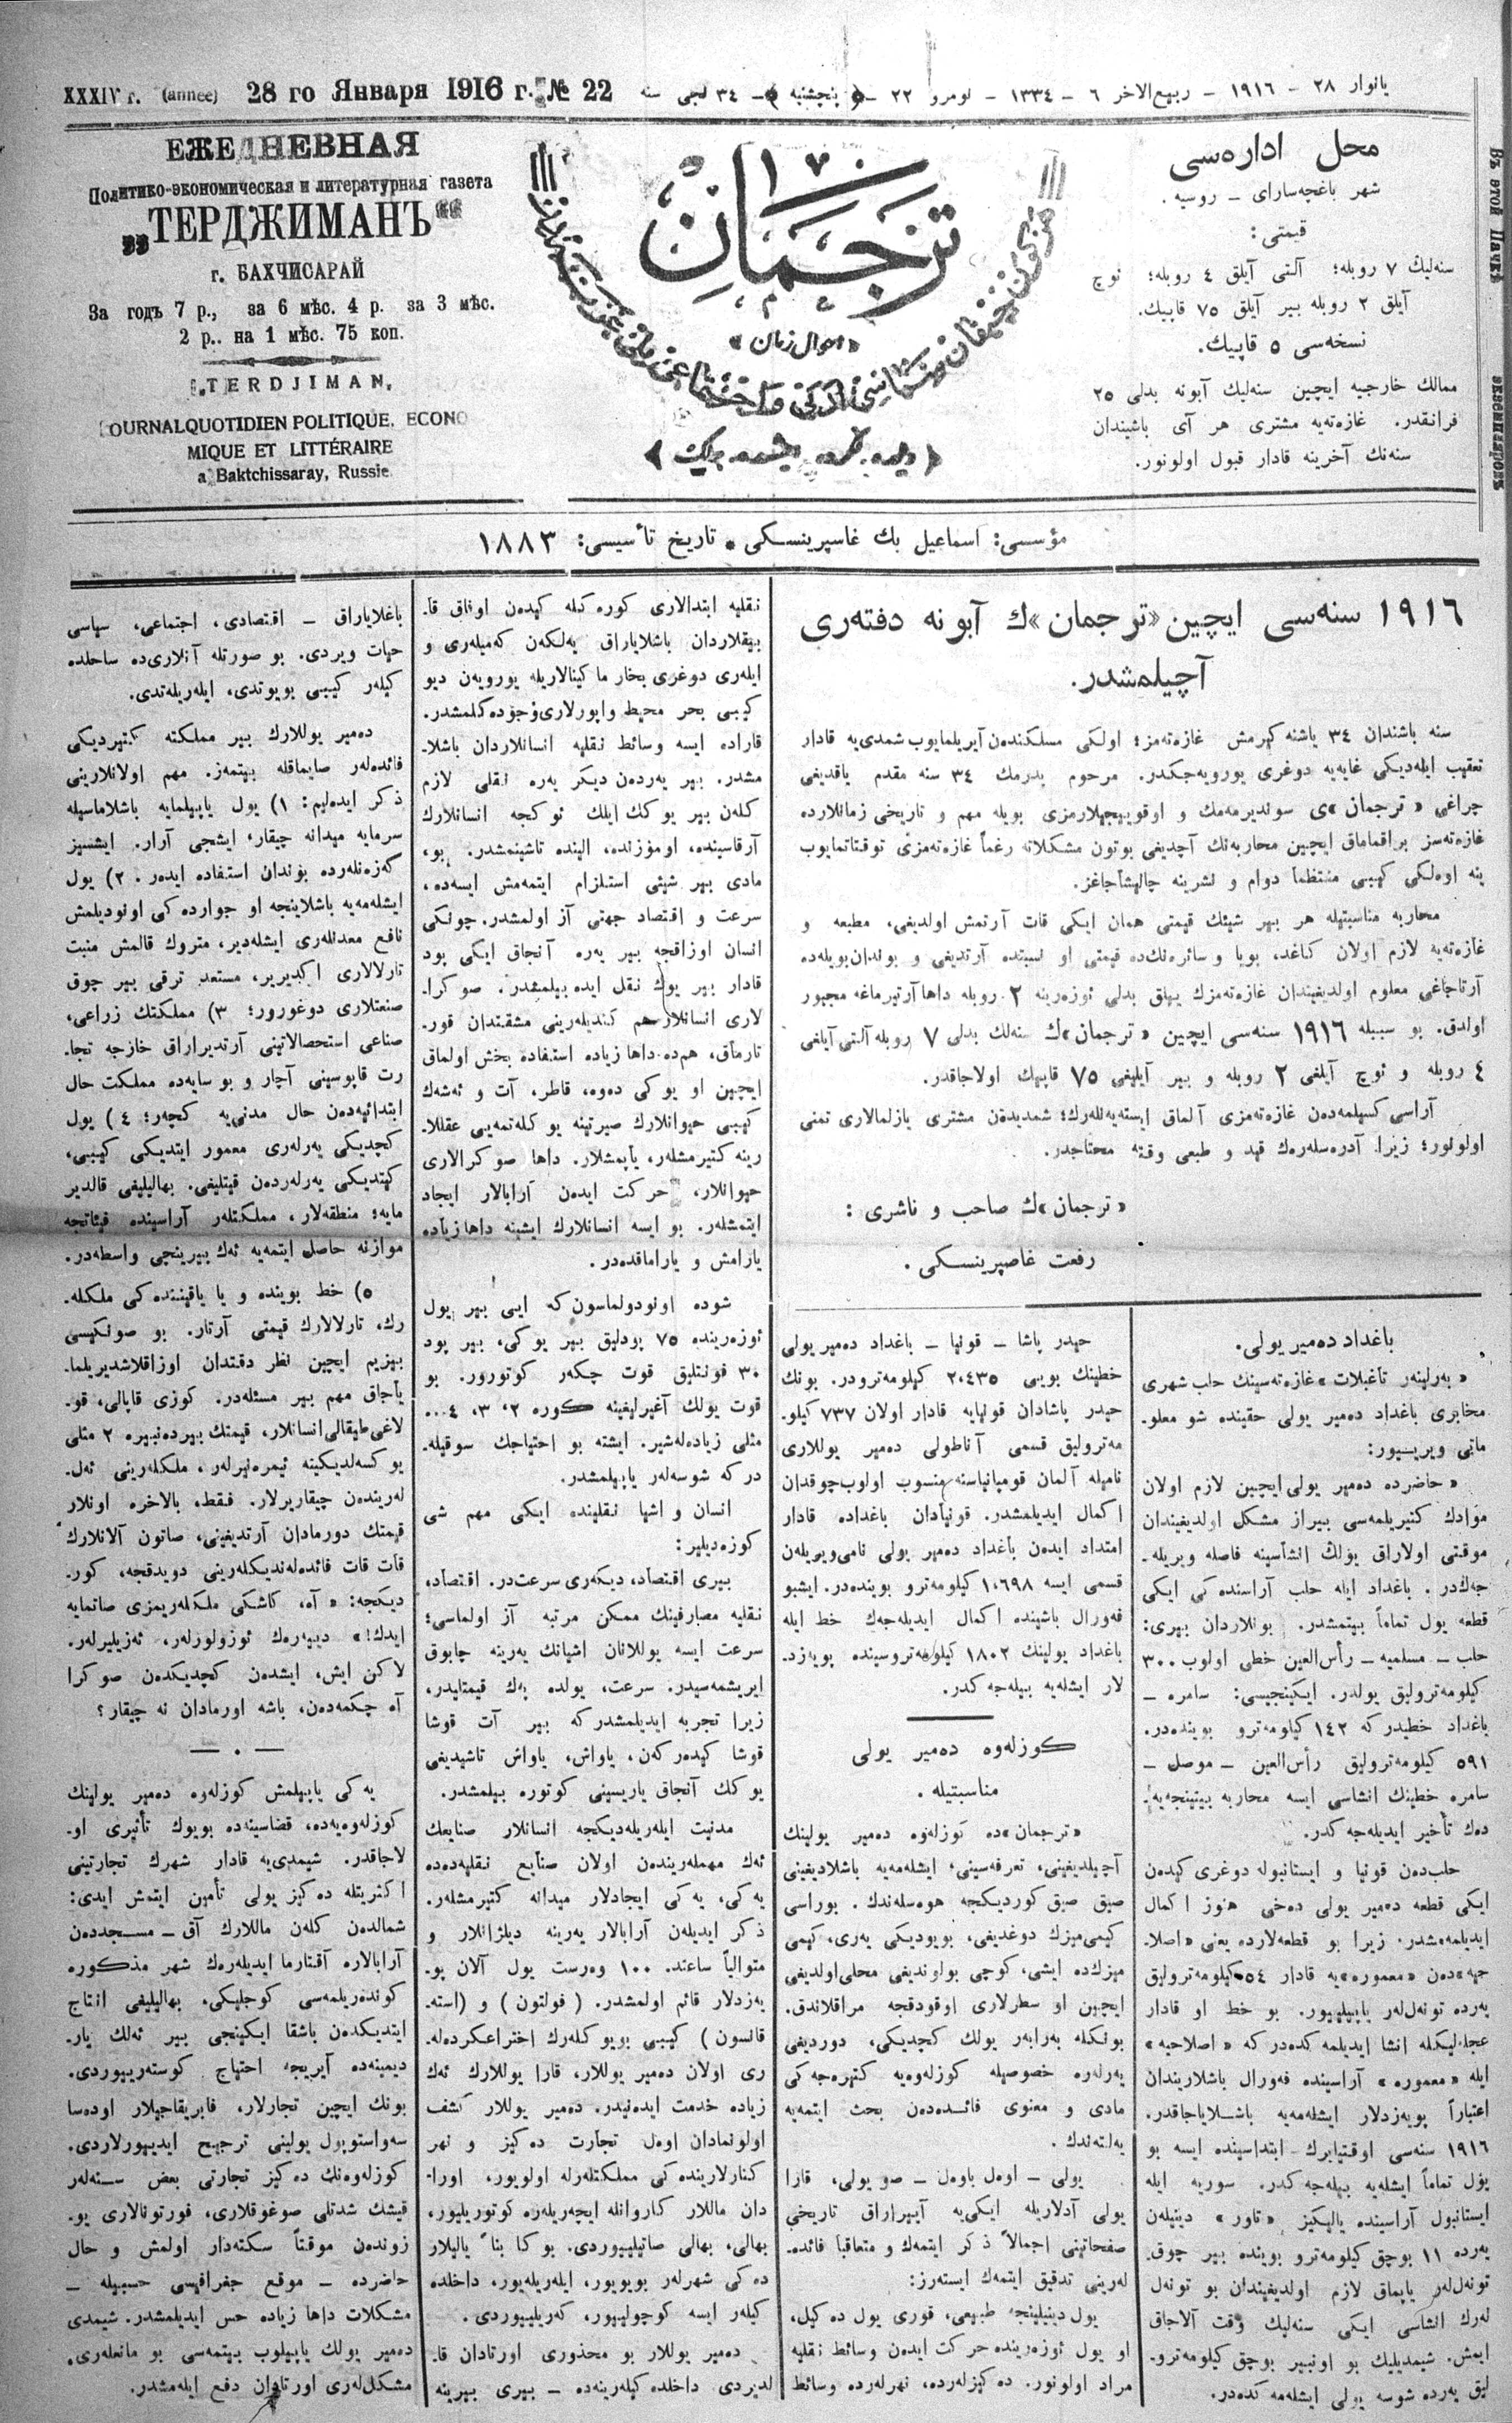 XXXIV г. (annee) 28 го Января 1916 г. № 22
٣٤ لجی سنه — پنجشنبه — ٢٢ نومرو — ١٣٣٤ — ٦ ربیع‌الاخر — ١٩١٦ — ٢٨ یانوار
ЕЖЕДНЕВНАЯ
Политико-экономическая и литературная газета
„ТЕРДЖИМАНЪ“
г. БАХЧИСАРАЙ
За годъ 7 р., за 6 мѣс. 4 р. за 3 мѣс.
2 р.. на 1 мѣс. 75 коп.
TERDJIMAN,
JOURNAL QUOTIDIEN POLITIQUE, ECONO
MIQUE ET LITTÉRAIRE
a Baktchissaray, Russie.
ترجمان
«احوال زمان»
( دیلده، فکرده، ایشده بیرلیك )
محل اداره‌سی
شهر باغچه‌سارای — روسیه.
قیمتی:
سنه‌لیك ٧ روبله؛ آلتی آیلق ٤ روبله؛ ئوچ
آیلق ٢ روبله بیر آیلق ٧٥ قاپیك.
نسخه‌سی ٥ قاپیك.
ممالك خارجیه ایچین سنه‌لیك آبونه بدلی ٢٥
فرانقدر. غازه‌ته‌یه مشتری هر آی باشیندان
سنه‌نك آخرینه قادار قبول اولونور.
Въ этой пачкѣ
экземпляровъ
مؤسسی: اسماعیل بك غاسپرینسکی • تاریخ تأسیسی: ١٨٨٣
١٩١٦ سنه‌سی ایچین «ترجمان»ك آبونه دفته‌ری
آچیلمشدر.
سنه باشندان ٣٤ یاشنه کیرمش غازه‌ته‌مز؛ اولکی مسلکنده‌ن آیریلمایوب شمدی‌یه قادار
تعقیب ایله‌دیکی غایه‌یه دوغری یورویه‌جکدر. مرحوم پدرمك ٣٤ سنه مقدم یاقدیغی
چراغی «ترجمان»ی سوندیرمه‌مك و اوقویجیلارمزی بویله مهم و تاریخی زمانلارده
غازه‌ته‌سز براقماماق ایچین محاربه‌نك آچدیغی بوتون مشکلاته رغماً غازه‌ته‌مزی توقتاتمایوب
ینه اوه‌لکی کیبی منتظماً دوام و نشرینه چالیشاجاغز.
محاربه مناسبتیله هر بیر شیئك قیمتی همان ایکی قات آرتمش اولدیغی، مطبعه و
غازه‌ته‌یه لازم اولان کاغد، بویا و سائره‌نك‌ده قیمتی او نسبتده آرتدیغی و بوندان‌بویله‌ده
آرتاجاغی معلوم اولدیغیندان غازه‌ته‌مزك ییلق بدلی ئوزه‌رینه ٢ روبله داها آرتیرماغه مجبور
اولدق. بو سببله ١٩١٦ سنه‌سی ایچین «ترجمان»ك سنه‌لك بدلی ٧ روبله آلتی آیلغی
٤ روبله و ئوچ آیلغی ٢ روبله و بیر آیلیغی ٧٥ قاپیك اولاجاقدر.
آراسی کسیلمه‌ده‌ن غازه‌ته‌مزی آلماق ایسته‌یه‌نله‌رك؛ شمدیده‌ن مشتری یازلمالاری تمنی
اولونور؛ زیرا آدره‌سله‌رك قید و طبعی وقته محتاجدر.
«ترجمان»ك صاحب و ناشری :
رفعت غاصپرینسکی .
باغداد ده‌میر یولی.
«به‌رلینه‌ر تاغبلات» غازه‌ته‌سینك حلب شهری
مخابری باغداد ده‌میر یولی حقینده شو معلو-
ماتی ویریییور:
«حاضرده ده‌میر یولی ایچین لازم اولان
موادك کتیریلمه‌سی بیراز مشکل اولدیغیندان
موقتی اولاراق یولك انشأسینه فاصله ویریله-
جه‌کدر. باغداد ایله حلب آراسنده کی ایکی
قطعه یول تماماً بیتمشدر. بونلاردان بیری:
حلب — مسلمیه — رأس‌العین خطی اولوب ٣٠٠
کیلومه‌ترولیق یولدر. ایکینجیسی: سامره —
باغداد خطیدر که ١٤٢ کیلومه‌ترو بوینده‌در.
٥٩١ کیلومه‌ترولیق رأس‌العین — موصل —
سامره خطینك انشاسی ایسه محاربه بیتینجه‌یه-
ده‌ك تأخیر ایدیله‌جه کدر.
حلب‌ده‌ن قونیا و ایستانبوله دوغری کیده‌ن
ایکی قطعه ده‌میر یولی ده‌خی هنوز اکمال
ایدیلمه‌مشدر. زیرا بو قطعه‌لارده یعنی «اصلا-
حیه»ده‌ن «معموره»یه قادار ٥٤ کیلومه‌ترولیق
یه‌رده تونه‌ل‌له‌ر یاپیلییور. بو خط او قادار
عجله‌لیکله انشا ایدیلمه کده‌در که «اصلاحیه»
ایله «معموره» آراسینده فه‌ورال باشلاریندان
اعتباراً پویه‌زدلار ایشله‌مه‌یه باشلایاجاقدر.
١٩١٦ سنه‌سی اوقتیابرك ابتداسینده ایسه بو
یول تماماً ایشله‌یه بیله‌جه کدر. سوریه ایله
ایستانبول آراسینده یالیکیز «تاور» دینیله‌ن
یه‌رده ١١ بوچق کیلومه‌ترو بوینده بیر چوق
تونه‌ل‌له‌ر یاپماق لازم اولدیغیندان بو تونه‌ل
له‌رك انشاسی ایکی سنه‌لیك وقت آلاجاق
ایمش. شیمدیلیك بو اونبیر بوچق کیلومه‌ترو-
لیق یه‌رده شوسه یولی ایشله‌مه کده‌در.
حیدر پاشا — قونیا — باغداد ده‌میر یولی
خطینك بویی ٢،٤٣٥ کیلومه‌ترودر. بونك
حیدر پاشادان قونیایه قادار اولان ٧٣٧ کیلو-
مه‌ترولیق قسمی آناطولی ده‌میر یوللاری
نامیله آلمان قومپانیاسنه منسوب اولوب‌چوقدان
اکمال ایدیلمشدر. قونیادان باغداده قادار
امتداد ایده‌ن باغداد ده‌میر یولی نامی‌ویریله‌ن
قسمی ایسه ١،٦٩٨ کیلومه‌ترو بوینده‌در. ایشبو
فه‌ورال باشینده اکمال ایدیله‌جه‌ك خط ایله
باغداد یولینك ١٨٠٢ کیلومه‌تروسینده پویه‌زد-
لار ایشله‌یه بیله‌جه کدر.
کوزله‌وه ده‌میر یولی
مناسبتیله .
«ترجمان»ده کوزله‌وه ده‌میر یولینك
آچیلدیغینی، تعرفه‌سینی، ایشله‌مه‌یه باشلادیغینی
صیق صیق کوردیکجه هوه‌سله‌ندك. بوراسی
کیمی‌میزك دوغدیغی، بویودیکی یه‌ری، کیمی
میزك‌ده ایشی، کوچی بولوندیغی محلی‌اولدیغی
ایچین او سطرلاری اوقودقجه مراقلاندق.
بونکله به‌رابه‌ر یولك کچدیکی، دوردیغی
یه‌رله‌ره خصوصیله کوزله‌وه‌یه کتیره‌جه کی
مادی و معنوی فائده‌ده‌ن بحث ایتمه‌یه
یه‌لته‌ندك .
یولی — اوه‌ل باوه‌ل — صو یولی، قارا
یولی آدلاریله ایکی‌یه آییراراق تاریخی
صفحاتینی اجمالاً ذکر ایتمه‌ك و متعاقبا فائده-
له‌رینی تدقیق ایتمه‌ك ایسته‌رز:
یول دینیلینجه طبیعی، قوری یول ده کیل،
او یول ئوزه‌رینده حرکت ایده‌ن وسائط نقلیه
مراد اولونور. ده کیزله‌رده، نهرله‌رده وسائط
نقلیه ابتدالاری کوره کله کیده‌ن اوفاق قا-
ییقلاردان باشلایاراق یه‌لکه‌ن که‌میله‌ری و
ایله‌ری دوغری بخار ماکینالاریله یورویه‌ن دیو
کیبی بحر محیط واپورلاری‌وجوده‌کلمشدر.
قاراده ایسه وسائط نقلیه انسانلاردان باشلا-
مشدر. بیر یه‌رده‌ن دیکر یه‌ره نقلی لازم
کله‌ن بیر یوکك ایلك ئوکجه انسانلارك
آرقاسینده، اوموزنده، الینده تاشینمشدر. بو،
مادی بیر شیئی استلزام ایتمه‌مش ایسه‌ده،
سرعت و اقتصاد جهتی آز اولمشدر. چونکی
انسان اوزاقجه بیر یه‌ره آنجاق ایکی پود
قادار بیر یوك نقل ایده بیلمشدر. صوکرا-
لاری انسانلار هم کندیله‌رینی مشقتدان قور-
تارماق، هم‌ده داها زیاده استفاده بخش اولماق
ایچین او یوکی ده‌وه، قاطر، آت و ئه‌شه‌ك
کیبی حیوانلارك صیرتینه یوکله‌تمه‌یی عقللا-
رینه کتیرمشله‌ر، یاپمشلار. داها صوکرالاری
حیوانلار، حرکت ایده‌ن آرابالار ایجاد
ایتمشله‌ر. بو ایسه انسانلارك ایشینه داها زیاده
یارامش و یاراماقده‌در.
شوده اونودولماسون که ایی بیر یول
ئوزه‌رینده ٧٥ پودلیق بیر یوکی، بیر پود
٣٠ فونتلیق قوت چکه‌ر کوتورور. بو
قوت یولك آغیرلیغینه کوره ٢، ٣، ٤...
مثلی زیاده‌له‌شیر. ایشته بو احتیاجك سوقیله-
در که شوسه‌له‌ر یاپیلمشدر.
انسان و اشیا نقلینده ایکی مهم شی
کوزه‌دیلیر:
بیری اقتصاد، دیکه‌ری سرعت‌در. اقتصاد،
نقلیه مصارفینك ممکن مرتبه آز اولماسی؛
سرعت ایسه یوللانان اشیانك یه‌رینه چابوق
ایریشمه‌سیدر. سرعت، یولده په‌ك قیمتلیدر،
زیرا تجربه ایدیلمشدر که بیر آت قوشا
قوشا کیده‌رکه‌ن، یاواش، یاواش تاشیدیغی
یوکك آنجاق یاریسینی کوتوره بیلمشدر.
مدنیت ایله‌ریله‌دیکجه انسانلار صنایعك
ئه‌ك مهمله‌رینده‌ن اولان صنایع نقلیه‌ده‌ده
یه کی، یه کی ایجادلار میدانه کتیرمشله‌ر.
ذکر ایدیله‌ن آرابالار یه‌رینه دیلژانلار و
متوالیاً ساعتد. ١٠٠ وه‌رست یول آلان پو-
یه‌زدلار قائم اولمشدر. (فولتون) و (استه-
فانسون) کیبی بویوکله‌رك اختراعکرده‌له-
ری اولان ده‌میر یوللار، قارا یوللارك ئه‌ك
زیاده خدمت ایده‌نیدر. ده‌میر یوللار کشف
اولونمادان اوه‌ل تجارت ده کیز و نهر
کنارلارینده کی مملکتله‌رله اولویور، اورا-
دان ماللار کاروانله ایچه‌ریله‌ره کوتوریلیور،
بهالی، بهالی صاتیلییوردی. بوکا بنا ًیالیلار
ده کی شهرله‌ر بویویور، ایله‌ریله‌یور، داخلده
کیله‌ر ایسه کوچولییور، که‌ریلییوردی.
ده‌میر یوللار بو محذوری اورتادان قا-
لدیردی داخلده کیله‌رینه‌ده — بیری بیرینه
باغلایاراق — اقتصادی، اجتماعی، سیاسی
حیات ویردی. بو صورتله آنلاری‌ده ساحلده
کیله‌ر کیبی بویوتدی، ایله‌ریله‌تدی.
ده‌میر یوللارك بیر مملکته کتیردیکی
فائده‌له‌ر صایماقله بیتمه‌ز. مهم اولانلارینی
ذکر ایده‌لیم: ١) یول یاپیلمایه باشلاماسیله
سرمایه میدانه چیقار، ایشجی آرار. ایشسیز
که‌زه‌نله‌رده بوندان استفاده ایده‌ر. ٢) یول
ایشله‌مه‌یه باشلاینجه او جوارده کی اونودیلمش
نافع معدنله‌ری ایشله‌دیر، متروك قالمش منبت
تارلالاری اکدیریر، مستعد ترقی بیر چوق
صنعتلاری دوغورور؛ ٣) مملکتك زراعی،
صناعی استحصالاتینی آرتدیراراق خارجه تجا-
رت قاپوسینی آچار و بو سایه‌ده مملکت حال
ابتدائیه‌ده‌ن حال مدنی‌یه کچه‌ر؛ ٤) یول
کچدیکی یه‌رله‌ری معمور ایتدیکی کیبی،
کیتدیکی یه‌رله‌رده‌ن قیتلیغی، بهالیلیغی قالدیر
مایه؛ منطقه‌لار، مملکتله‌ر آراسینده فیئاتجه
موازنه حاصل ایتمه‌یه ئه‌ك بیرینجی واسطه‌در.
٥) خط بوینده و یا یاقیننده کی ملکله-
رك، تارلالارك قیمتی آرتار. بو صونکیسی
بیزیم ایچین نظر دقتدان اوزاقلاشدیریلما-
یاجاق مهم بیر مسئله‌در. کوزی قاپالی، قو-
لاغی‌طیقالی‌انسانلار، قیمتك بیرده‌نبیره ٢ مثلی
یوکسه‌لدیکینه ئیمره‌نیرله‌ر، ملکله‌رینی ئه‌ل-
له‌رینده‌ن چیقاریرلار. فقط، بالاخره اونلار
قیمتك دورمادان آرتدیغینی، صاتون آلانلارك
قات قات فائده‌له‌ندیکله‌رینی دویدقجه، کور-
دیکجه: «آه، کاشکی ملکله‌ریمزی صاتمایه
ایدك!» دییه‌ره‌ك ئوزولورله‌ر، ئه‌زیلیرله‌ر.
لاکن ایش، ایشده‌ن کچدیکده‌ن صوکرا
آه چکمه‌ده‌ن، باشه اورمادان نه چیقار؟
یه کی یاپیلمش کوزله‌وه ده‌میر یولینك
کوزله‌وه‌یه‌ده، قضاسینه‌ده بویوك تأثیری او-
لاجاقدر. شیمدی‌یه قادار شهرك تجارتینی
اکثریتله ده کیز یولی تأمین ایتمش ایدی:
شمالده‌ن کله‌ن ماللارك آق — مسجدده‌ن
آرابالاره آقتارما ایدیله‌ره‌ك شهر مذکوره
کونده‌ریلمه‌سی کوجلیکی، بهالیلیغی انتاج
ایتدیکده‌ن باشقا ایکینجی بیر ئه‌لك یار-
دیمینه‌ده آیریجه احتیاج کوسته‌ریییوردی.
بونك ایچین تجارلار، فابریقاجیلار اوده‌سا
سه‌واستوپول یولینی ترجیح ایدییورلاردی.
کوزله‌وه‌نك ده کیز تجارتی بعض سنه‌له‌ر
قیشك شدتلی صوغوقلاری، فورتونالاری یو-
زونده‌ن موقتاً سکته‌دار اولمش و حال
حاضرده — موقع جغرافیسی حسبیله —
مشکلات داها زیاده حس ایدیلمشدر. شیمدی
ده‌میر یولك یاپیلوب بیتمه‌سی بو مانعله‌ری،
مشکل‌له‌ری اورتادان دفع ایله‌مشدر.